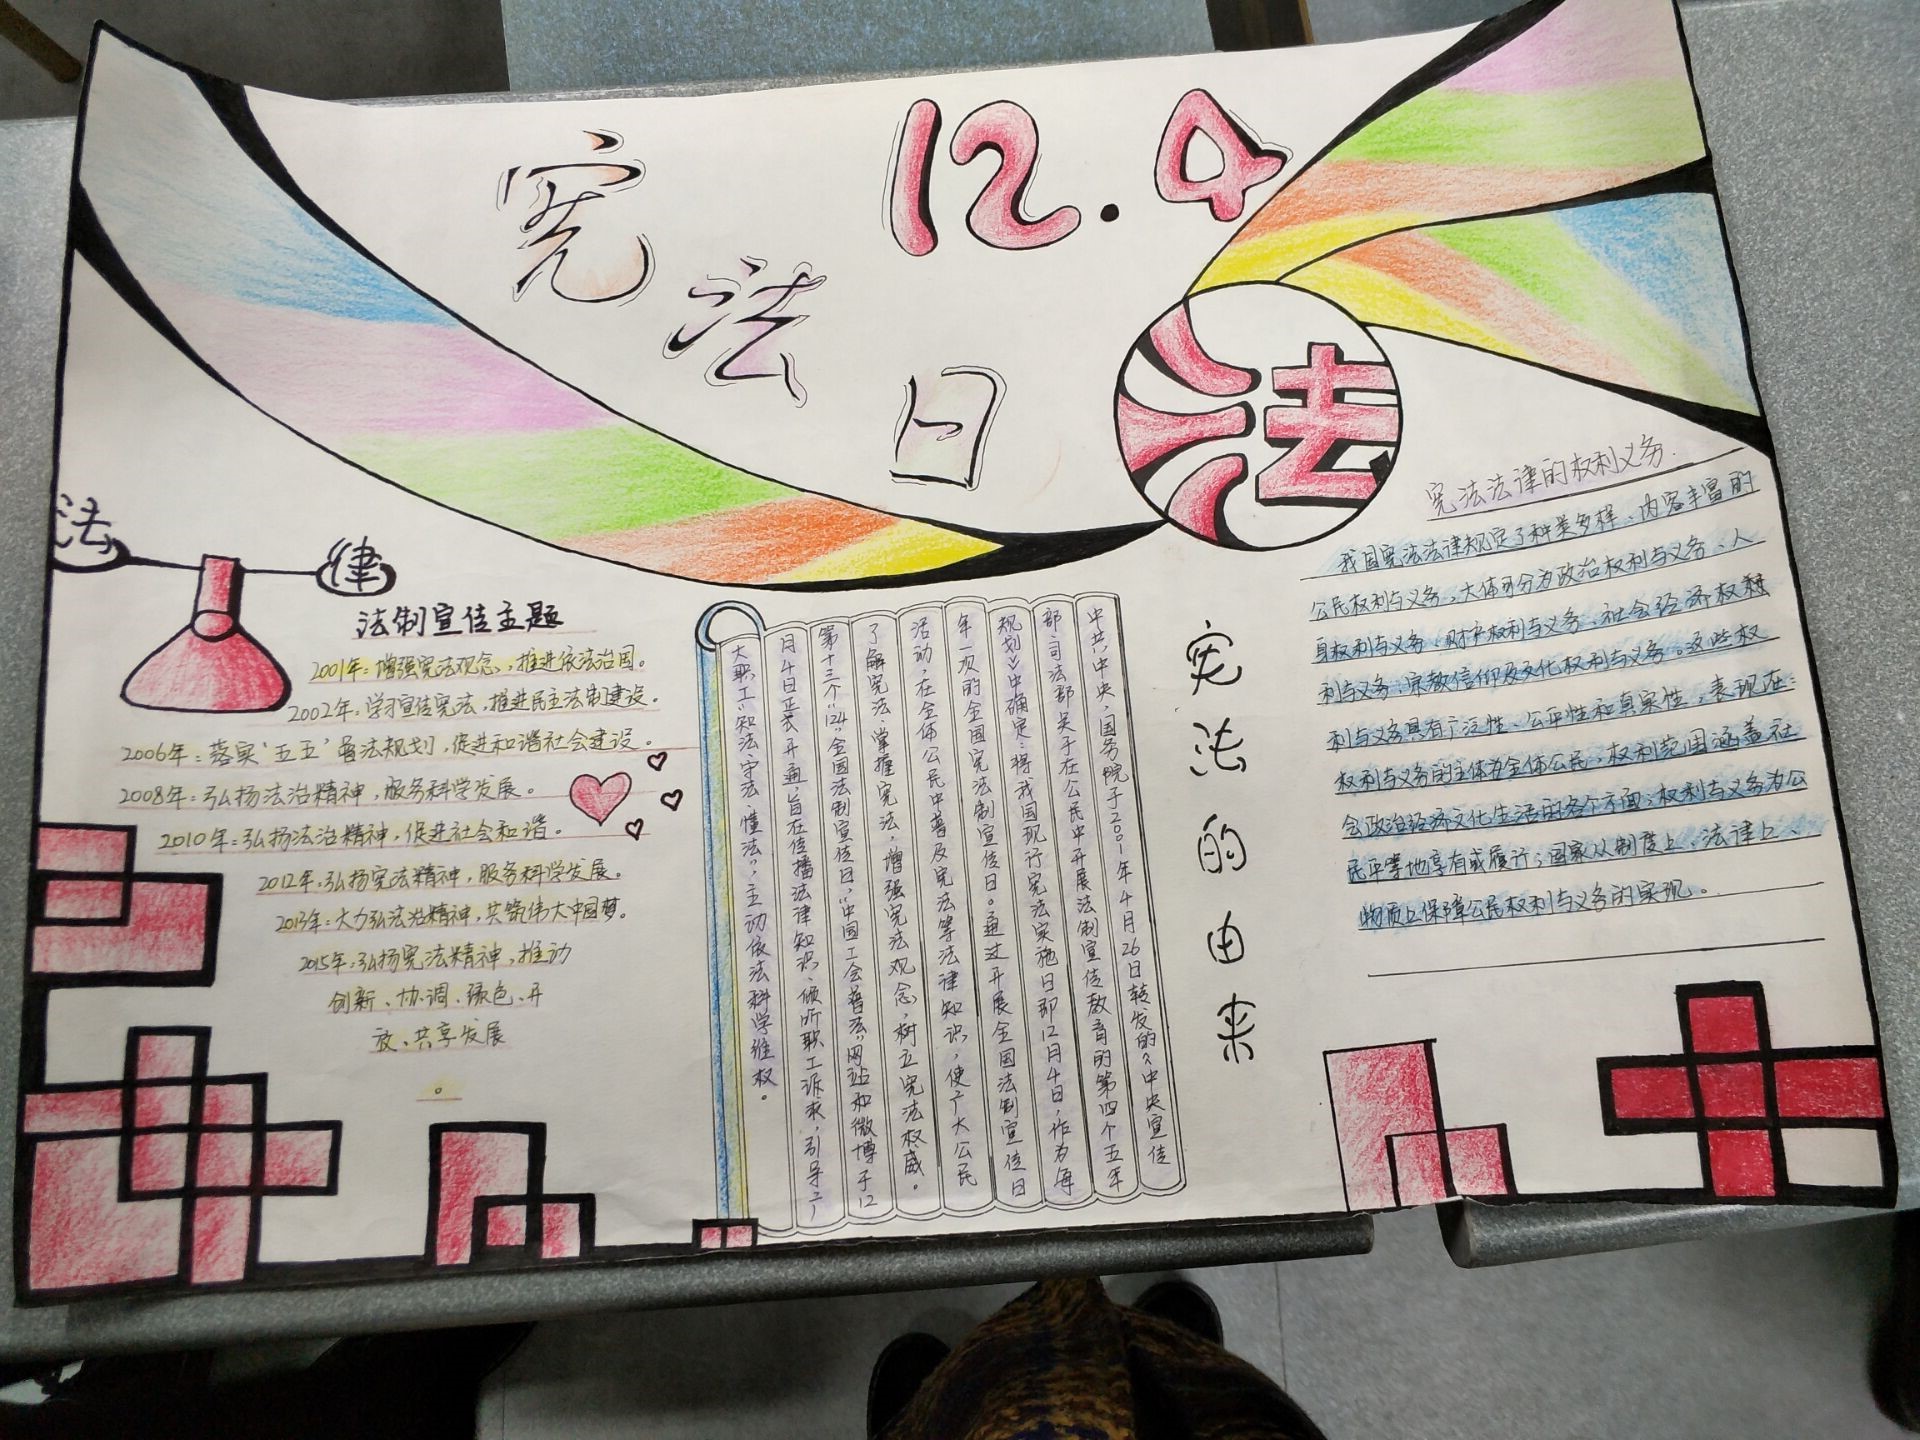 12.4
宪法日
法
法 律
法制宣传主题
2001年:增强宪法观念,推进依法治国。
2002年:学习宣传宪法,推进民主法制建设。
2006年:落实“五五”普法规划,促进和谐社会建设。
2008年:弘扬法治精神,服务科学发展。
2010年:弘扬法治精神,促进社会和谐。
2012年:弘扬宪法精神,服务科学发展。
2013年:大力弘法治精神,共筑伟大中国梦。
2015年:弘扬宪法精神,推动
创新、协调、绿色、开
放、共享发展
。
宪法的由来
中共中央,国务院于2001年4月26日转发的《中央宣传
部司法部关于在公民中开展法制宣传教育的第四个五年
规划》中确定:将我国现行宪法实施日即12月4日,作为每
年一次的全国宪法制宣传日。通过开展全国法制宣传日
活动,在全体公民中普及宪法等法律知识,使广大公民
了解宪法、掌握宪法、增强宪法观念,树立宪法权威。
第十三个“124”全国法制宣传日,“中国工会普法”网站和微博于12
月4日正式开通,旨在传播法律知识、倾听职工诉求,引导广
大职工“知法、守法、懂法”,主动依法科学维权。
宪法法律的权利义务
我国宪法法律规定了种类多样、内容丰富的
公民权利与义务,大体可分为政治权利与义务、人
身权利与义务、财产权利与义务、社会经济权利
利与义务、宗教信仰及文化权利与义务。这些权
利与义务具有广泛性、公平性和真实性,表现在:
权利与义务的主体为全体公民,权利范围涵盖社
会政治经济文化生活的各个方面;权利与义务为公
民平等地享有或履行;国家从制度上、法律上、
物质上保障公民权利与义务的实现。